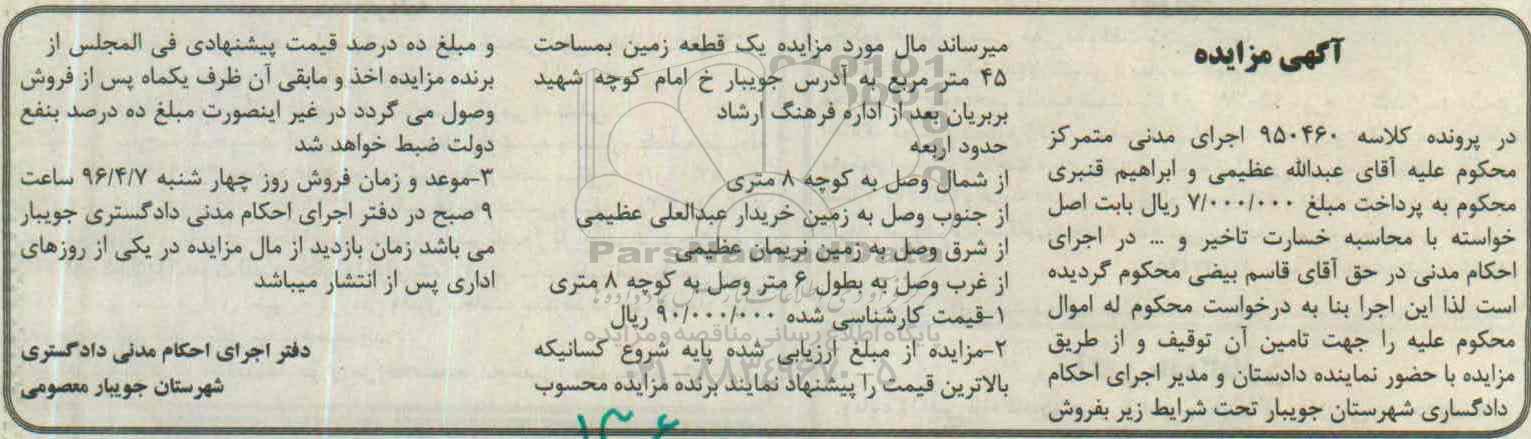 آگهی مزایده
در پرونده کلاسه ۹۵۰۴۶۰ اجرای مدنی متمرکز
محکوم علیه آقای عبدالله عظیمی و ابراهیم قنبری
محکوم به پرداخت مبلغ ۷/۰۰۰/۰۰۰ ریال بابت اصل
خواسته با محاسبه خسارت تاخیر و ... در اجرای
احکام مدنی در حق آقای قاسم بیضی محکوم گردیده
است لذا این اجرا بنا به درخواست محکوم له اموال
محکوم علیه را جهت تامین آن توقیف و از طریق
مزایده با حضور نماینده دادستان و مدیر اجرای احکام
دادگساری شهرستان جویبار تحت شرایط زیر بفروش
میرساند مال مورد مزایده یک قطعه زمین بمساحت
۴۵ متر مربع به آدرس جویبار خ امام کوچه شهید
بربریان بعد از اداره فرهنگ ارشاد
حدود اربعه
از شمال وصل به کوچه ۸ متری
از جنوب وصل به زمین خریدار عبدالعلی عظیمی
از شرق وصل به زمین نریمان عظیمی
از غرب وصل به بطول ۶ متر وصل به کوچه ۸ متری
۱-قیمت کارشناسی شده ۹۰/۰۰۰/۰۰۰ ریال
۲-مزایده از مبلغ ارزیابی شده پایه شروع کسانیکه
بالاترین قیمت را پیشنهاد نمایند برنده مزایده محسوب
و مبلغ ده درصد قیمت پیشنهادی فی المجلس از
برنده مزایده اخذ و مابقی آن ظرف یکماه پس از فروش
وصول می گردد در غیر اینصورت مبلغ ده درصد بنفع
دولت ضبط خواهد شد
۳-موعد و زمان فروش روز چهار شنبه ۹۶/۴/۷ ساعت
۹ صبح در دفتر اجرای احکام مدنی دادگستری جویبار
می باشد زمان بازدید از مال مزایده در یکی از روزهای
اداری پس از انتشار میباشد
دفتر اجرای احکام مدنی دادگستری
شهرستان جویبار معصومی
ParsNamadData
پایگاه اطلاع رسانی مناقصه و مزایده
۰۲۱-۸۸۳۴۹۶۷۰-۵